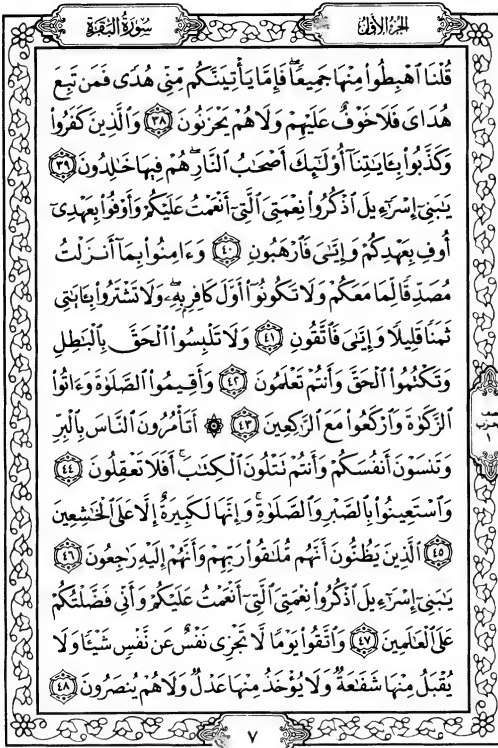 الجزء الأول
سورة البقرة
قُلْنَا ٱهْبِطُوا۟ مِنْهَا جَمِيعًاۖ فَإِمَّا يَأْتِيَنَّكُم مِّنِّى هُدًى فَمَن تَبِعَ
هُدَاىَ فَلَا خَوْفٌ عَلَيْهِمْ وَلَا هُمْ يَحْزَنُونَ ٣٨ وَٱلَّذِينَ كَفَرُوا۟
وَكَذَّبُوا۟ بِـَٔايَـٰتِنَآ أُو۟لَـٰٓئِكَ أَصْحَـٰبُ ٱلنَّارِۖ هُمْ فِيهَا خَـٰلِدُونَ ٣٩
يَـٰبَنِىٓ إِسْرَٰٓءِيلَ ٱذْكُرُوا۟ نِعْمَتِىَ ٱلَّتِىٓ أَنْعَمْتُ عَلَيْكُمْ وَأَوْفُوا۟ بِعَهْدِىٓ
أُوفِ بِعَهْدِكُمْ وَإِيَّـٰىَ فَٱرْهَبُونِ ٤٠ وَءَامِنُوا۟ بِمَآ أَنزَلْتُ
مُصَدِّقًا لِّمَا مَعَكُمْ وَلَا تَكُونُوٓا۟ أَوَّلَ كَافِرٍۭ بِهِۦۖ وَلَا تَشْتَرُوا۟ بِـَٔايَـٰتِى
ثَمَنًا قَلِيلًا وَإِيَّـٰىَ فَٱتَّقُونِ ٤١ وَلَا تَلْبِسُوا۟ ٱلْحَقَّ بِٱلْبَـٰطِلِ
وَتَكْتُمُوا۟ ٱلْحَقَّ وَأَنتُمْ تَعْلَمُونَ ٤٢ وَأَقِيمُوا۟ ٱلصَّلَوٰةَ وَءَاتُوا۟
ٱلزَّكَوٰةَ وَٱرْكَعُوا۟ مَعَ ٱلرَّٰكِعِينَ ٤٣ ۞ أَتَأْمُرُونَ ٱلنَّاسَ بِٱلْبِرِّ
وَتَنسَوْنَ أَنفُسَكُمْ وَأَنتُمْ تَتْلُونَ ٱلْكِتَـٰبَۚ أَفَلَا تَعْقِلُونَ ٤٤
وَٱسْتَعِينُوا۟ بِٱلصَّبْرِ وَٱلصَّلَوٰةِۚ وَإِنَّهَا لَكَبِيرَةٌ إِلَّا عَلَى ٱلْخَـٰشِعِينَ
٤٥ ٱلَّذِينَ يَظُنُّونَ أَنَّهُم مُّلَـٰقُوا۟ رَبِّهِمْ وَأَنَّهُمْ إِلَيْهِ رَٰجِعُونَ ٤٦
يَـٰبَنِىٓ إِسْرَٰٓءِيلَ ٱذْكُرُوا۟ نِعْمَتِىَ ٱلَّتِىٓ أَنْعَمْتُ عَلَيْكُمْ وَأَنِّى فَضَّلْتُكُمْ
عَلَى ٱلْعَـٰلَمِينَ ٤٧ وَٱتَّقُوا۟ يَوْمًا لَّا تَجْزِى نَفْسٌ عَن نَّفْسٍ شَيْـًٔا وَلَا
يُقْبَلُ مِنْهَا شَفَـٰعَةٌ وَلَا يُؤْخَذُ مِنْهَا عَدْلٌ وَلَا هُمْ يُنصَرُونَ ٤٨
الحزب
١
٧